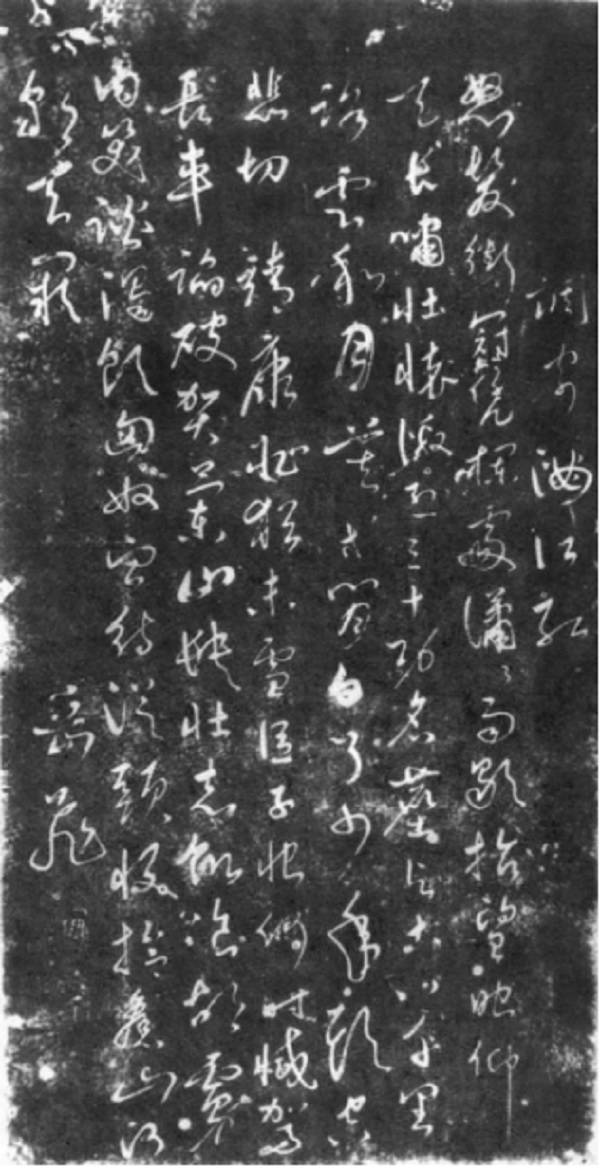 調寄滿江紅
怒髮衝冠凭欄處瀟〻雨歇抬望眼仰
天長嘯壯懷激烈三十功名塵与土八千里
路雲和月莫等閒白了少年頭空
悲切 靖康恥猶未雪臣子恨何時滅駕
長車踏破賀蘭山缺壯志飢飡胡虜
肉笑談渴飲匈奴血待從頭收拾舊山河
朝天闕 岳飛